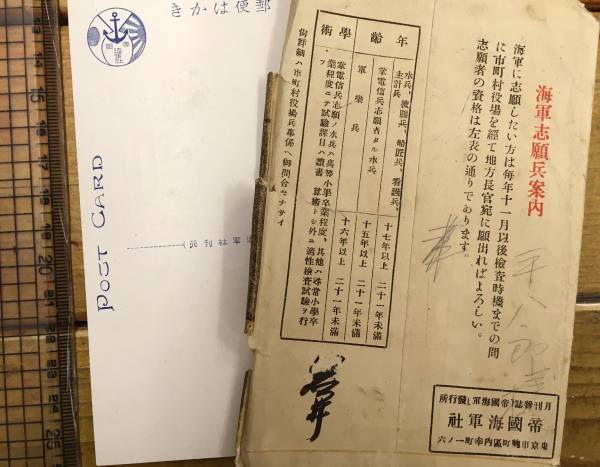 郵便はかき
POST CARD
海軍志願兵案内
海軍に志願したい方は毎年十一月以後檢査時機までの間
に市町村役場を經て地方長官宛に願出ればよろしい。
志願者の資格は左表の通りであります。
年齡
水兵、機關兵、船匠兵、看護兵、
主計兵
十七年以上 二十一年未滿
掌電信兵志願者タル水兵
十五年以上 二十一年未滿
軍樂兵
十六年以上 二十一年未滿
學術
掌電信兵志願ノ水兵ハ高等小學卒業程度、其他ハ尋常小學卒
業程度ニテ試驗課目ハ讀書 算術トシ外ニ適性檢査試驗ヲ行
フ
尚詳細ハ市町村役場兵事係ヘ御問合セナサイ
月刊雜誌「帝國海軍」發行所
帝國海軍社
東京市麹町區内幸町一ノ六
13
14
15
16
17
18
19
20
21
22
23
24
25